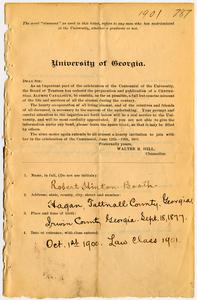 1901 787
The word "alumnus" as used in this letter, refers to any man who has matriculated
in the University, whether a graduate or not.
University of Georgia.
DEAR SIR:
As an important part of the celebration of the Centennial of the University,
the Board of Trustees has ordered the preparation and publication of a CENTEN-
NIAL ALUMNI CATALOGUE, to contain, as far as possible, a full but concise account
of the life and services of all the alumni during the century.
The hearty co-operation of all living alumni, and of the relatives and friends
of all deceased, is necessary to the success of the undertaking. Your prompt and
careful attention to the enquiries below will be a real service to the Uni-
versity, and will be most cordially appreciated. If you are not able to give the
information under any head, please leave the space blank, as it may be filled
by others.
The alma mater again extends to all alumni a hearty invitation to join with
her in the celebration of the Centennial, June 12th-19th, 1901.
Fraternally yours,
WALTER B. HILL,
Chancellor.
1. Name, in full, (Do not use initials):
Robert Hinton Booth
2. Address, state, county, city, street and number:
Hagan Tattnall County, Georgia
3. Place and time of birth:
Irwin County Georgia. Sept. 18, 1877.
4. Date of entrance, with class entered:
Oct. 1st 1900. Law Class 1901.